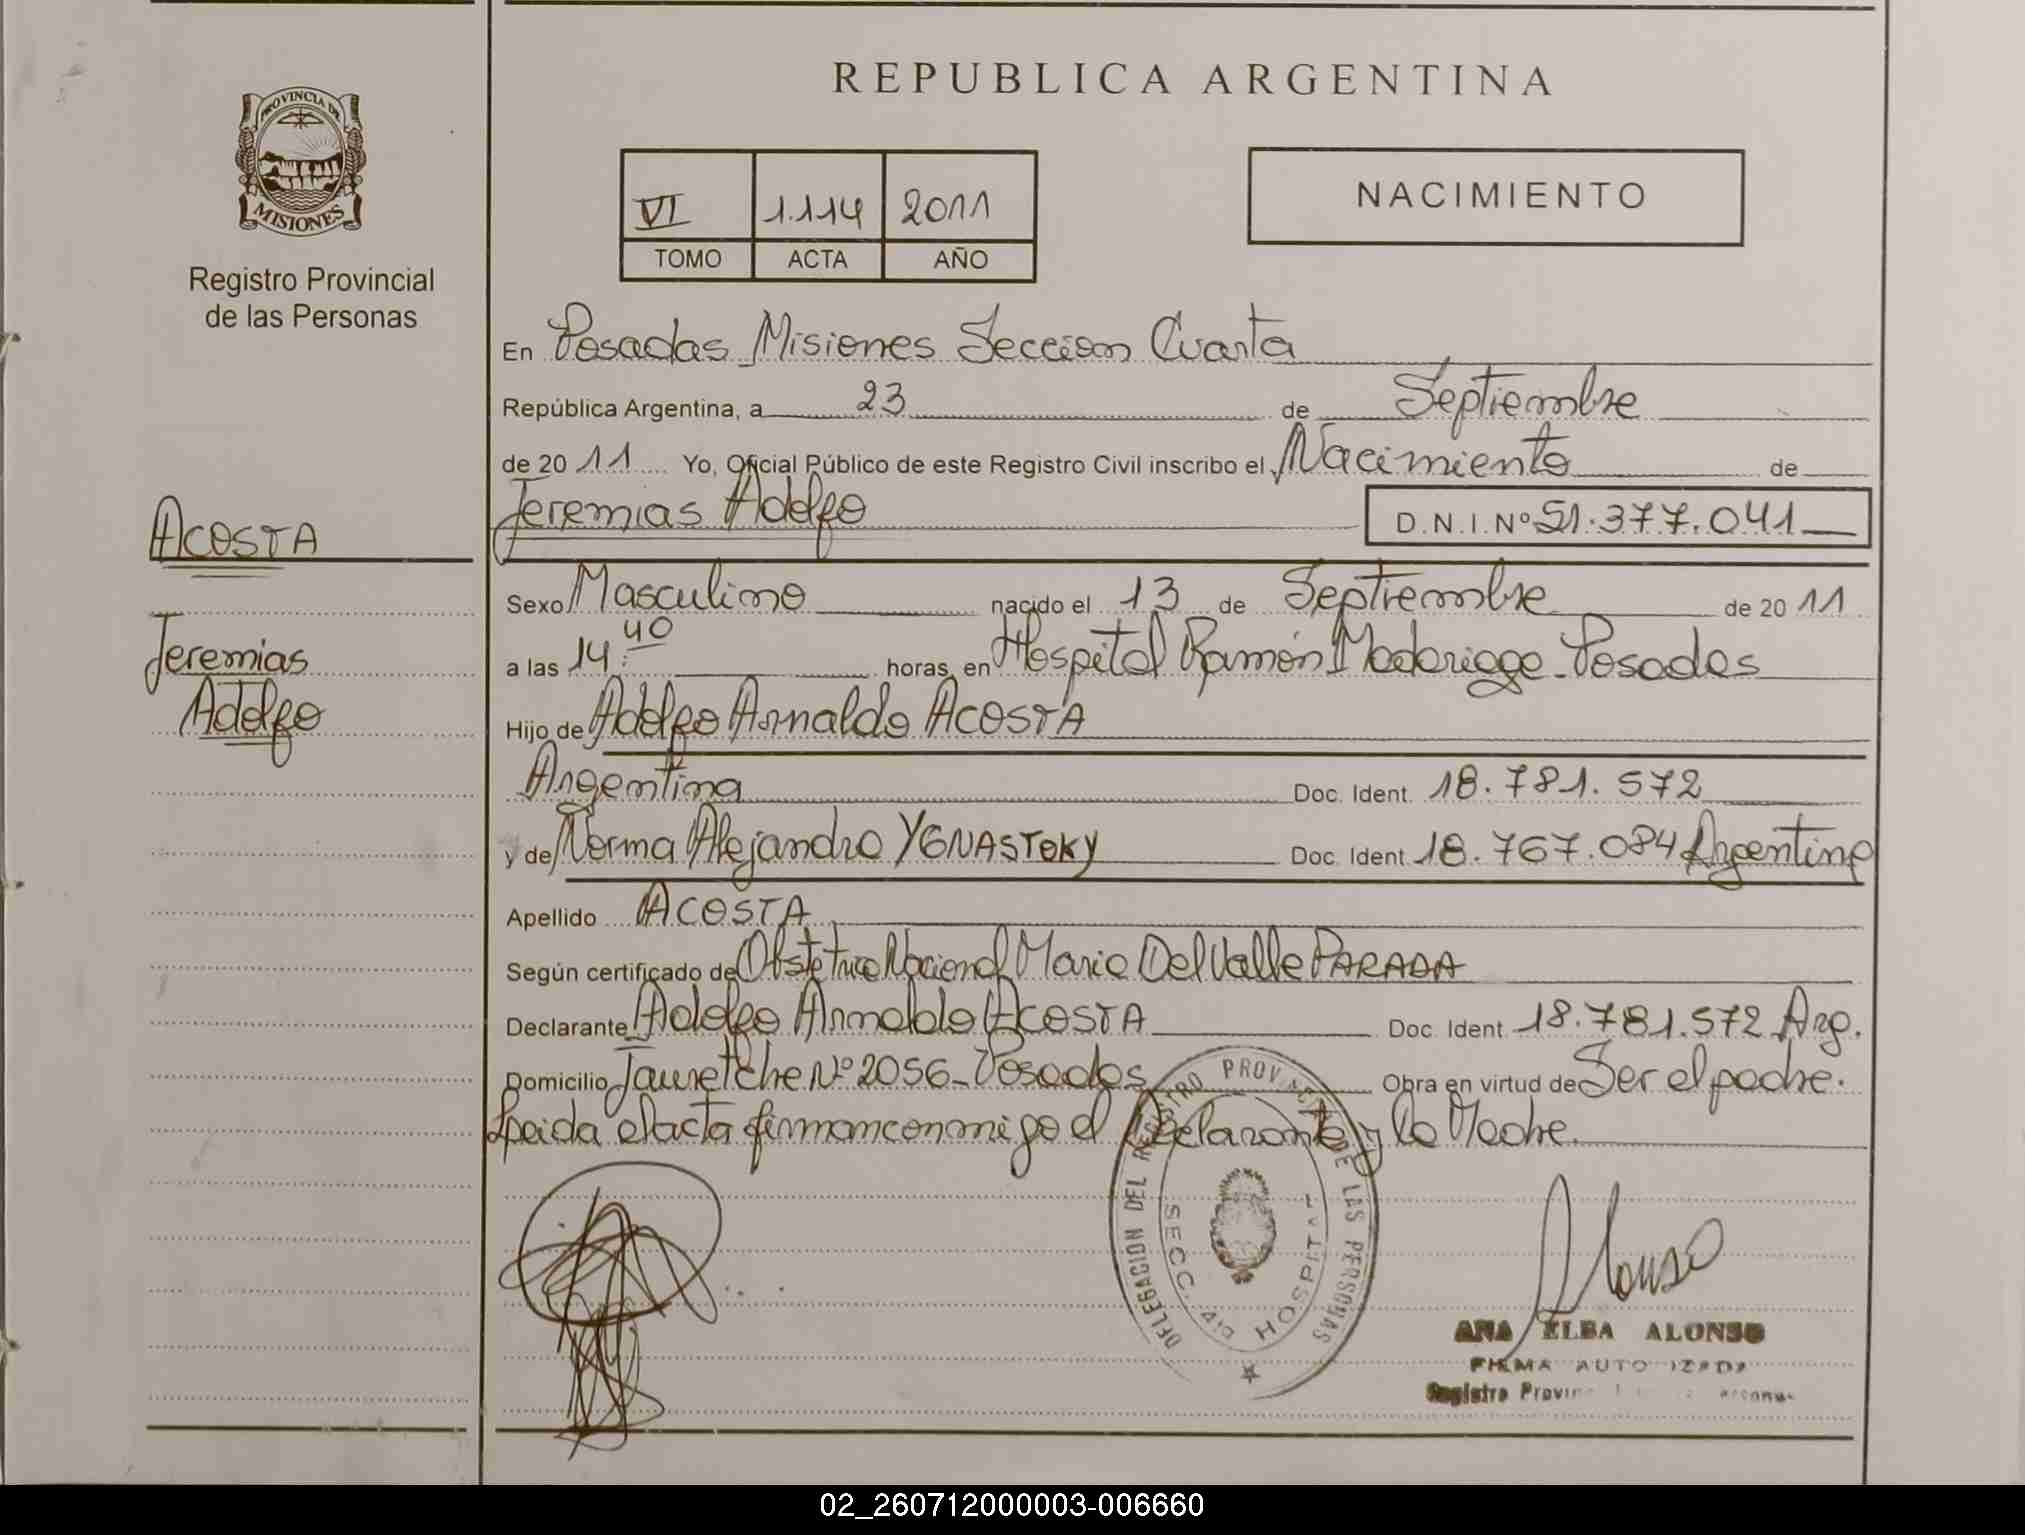 REPUBLICA ARGENTINA
PROVINCIA DE
MISIONES
Registro Provincial
de las Personas
VI 1.114 2011
TOMO ACTA AÑO
NACIMIENTO
En Posadas Misiones Seccion Cuarta
República Argentina, a 23 de Septiembre
de 20 11 Yo, Oficial Público de este Registro Civil inscribo el Nacimiento de
Jeremias Adolfo D.N.I.Nº 51.377.041
ACOSTA
Jeremias
Adolfo
Sexo Masculino nacido el 13 de Septiembre de 20 11
a las 14:40 horas, en Hospital Ramón Madariaga - Posadas
Hijo de Adolfo Arnaldo ACOSTA
Argentina Doc. Ident. 18.781.572
y de Norma Alejandra YGNASTOKY Doc. Ident. 18.767.084 Argentina
Apellido ACOSTA
Según certificado de Obstetrica Nacional Maria Del Valle PARADA
Declarante Adolfo Arnaldo ACOSTA Doc. Ident. 18.781.572 Arg.
Domicilio Jauretche Nº 2056 - Posadas Obra en virtud de Ser el padre.
Leida el acta firman conmigo el Declarante y la Madre.
DELEGACION DEL REGISTRO PROVINCIAL DE LAS PERSONAS
SECC. 4º HOSPITAL
Alonso
ANA ELBA ALONSO
FIRMA AUTORIZADA
Registro Provin
02_260712000003-006660